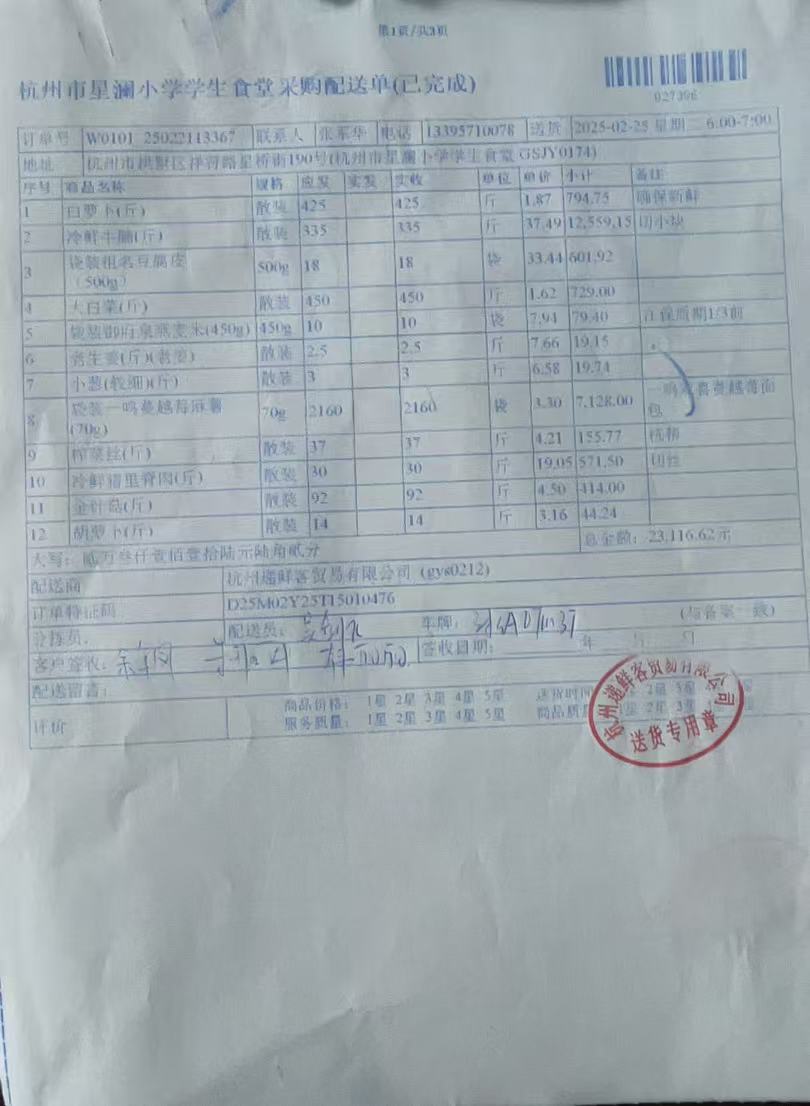 第1页/共3页
杭州市星澜小学学生食堂采购配送单(已完成)
027396
订单号 W0101_25022113367 联系人 张军华 电话 13395710078 送货 2025-02-25 星期二 6:00-7:00
地址 杭州市拱墅区祥符路星桥街190号(杭州市星澜小学学生食堂 GSJY0174)
序号 商品名称 规格 应发 实发 实收 单位 单价 小计 备注
1 白萝卜(斤) 散装 425 425 斤 1.87 794.75 确保新鲜
2 冷鲜牛腩(斤) 散装 335 335 斤 37.49 12,559.15 切小块
3 袋装祖名豆腐皮(500g) 500g 18 18 袋 33.44 601.92
4 大白菜(斤) 散装 450 450 斤 1.62 729.00
5 袋装御府泉燕麦米(450g) 450g 10 10 袋 7.94 79.40 保质期1/3前
6 老生姜(斤)(老姜) 散装 2.5 2.5 斤 7.66 19.15
7 小葱(较细)(斤) 散装 3 3 斤 6.58 19.74
8 袋装一鸣蔓越莓麻薯(70g) 70g 2160 2160 袋 3.30 7,128.00 一鸣 蔓越莓面包
9 榨菜丝(斤) 散装 37 37 斤 4.21 155.77
10 冷鲜猪里脊肉(斤) 散装 30 30 斤 19.05 571.50 切丝
11 金针菇(斤) 散装 92 92 斤 4.50 414.00
12 胡萝卜(斤) 散装 14 14 斤 3.16 44.24
大写：贰万叁仟壹佰壹拾陆元陆角贰分 总金额：23,116.62元
配送商 杭州递鲜客贸易有限公司 (gys0212)
订单特征码 D25M02Y25T15010476
分拣员： 配送员： 车牌： (与备案一致)
客户签收： 签收日期： 年 月 日
配送留言：
评价 商品价格： 1星 2星 3星 4星 5星 送货时间 2星 3星
服务质量： 1星 2星 3星 4星 5星 商品质量 2星 3星
杭州递鲜客贸易有限公司
送货专用章